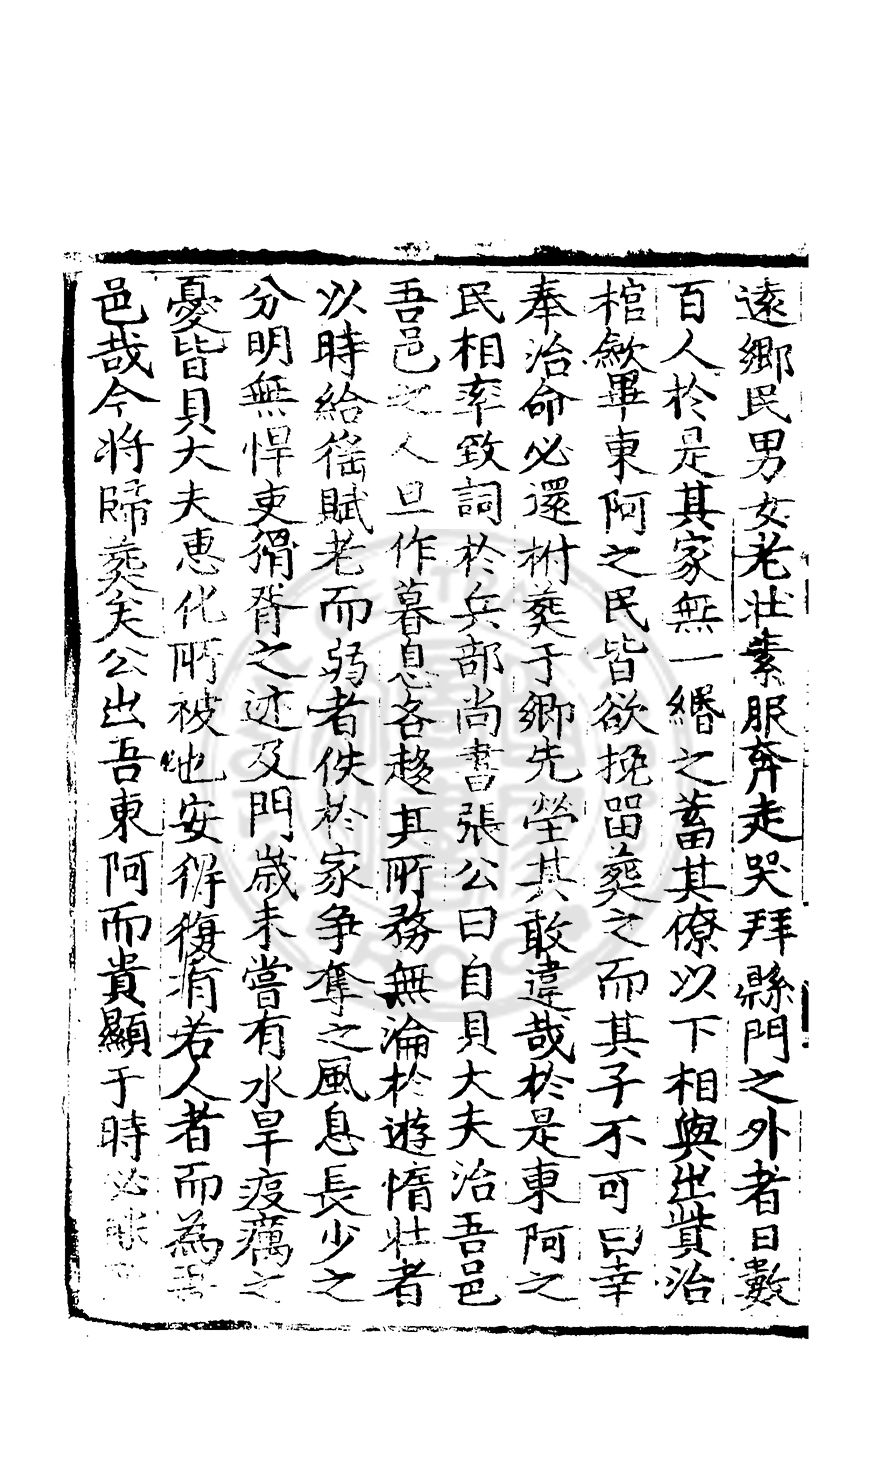 遠鄉民男女老壯素服奔走哭拜縣門之外者日數
百人於是其家無一緡之蓄其僚以下相與出貲治
棺歛畢東阿之民皆欲挽留葬之而其子不可曰幸
奉治命必還祔葬于鄉先塋其敢違哉於是東阿之
民相率致詞於兵部尚書張公曰自貝大夫治吾邑
吾邑之人旦作暮息各趍其所務無淪於遊惰壯者
以時給徭賦老而弱者佚於家爭奪之風息長少之
分明無悍吏猾胥之迹及門歲未嘗有水旱疫癘之
憂皆貝大夫惠化所被也安得復有若人者而為吾
邑哉今將歸葬矣公出吾東阿而貴顯于時必